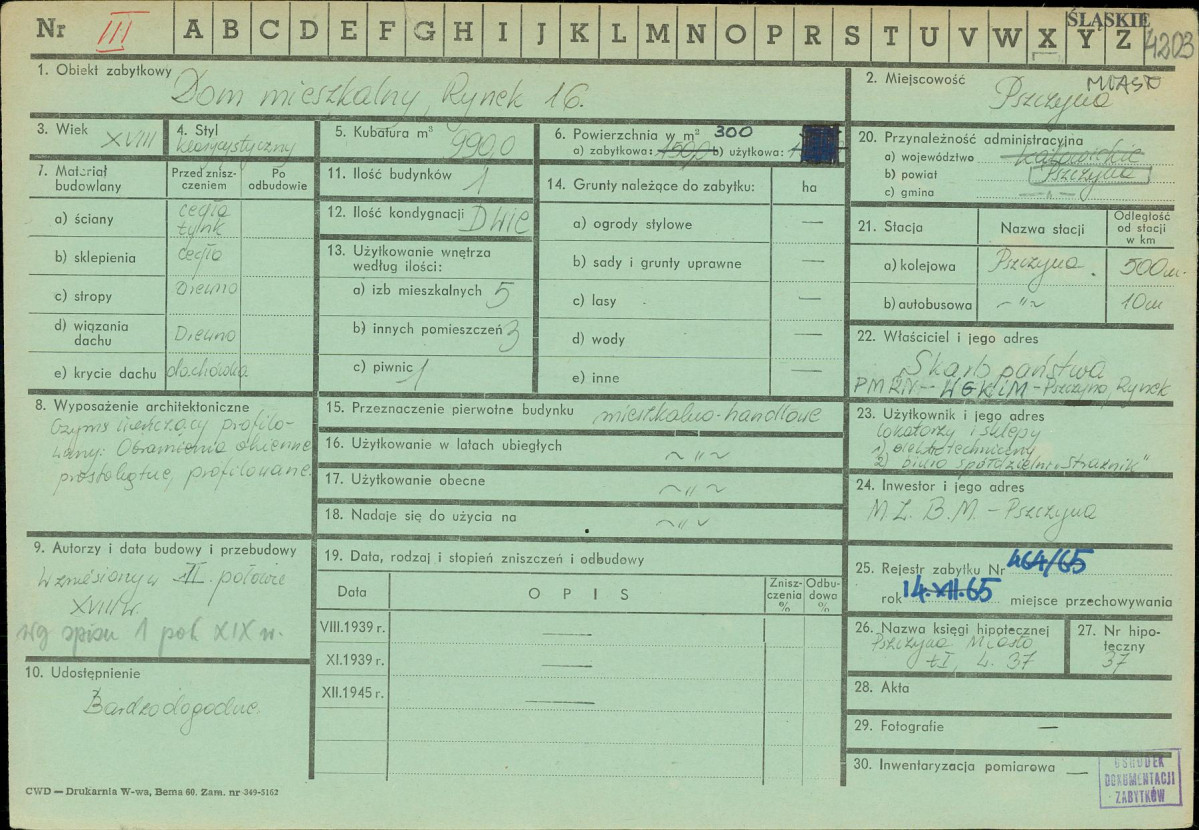 Nr III A B C D E F G H I J K L M N O P R S T U V W X Y Z
ŚLĄSKIE
4203
1. Obiekt zabytkowy
Dom mieszkalny, Rynek 16.
2. Miejscowość
Pszczyna MIASTO
3. Wiek
XVIII
4. Styl
klasycystyczny
5. Kubatura m³
9900
6. Powierzchnia w m² 300
a) zabytkowa: b) użytkowa:
20. Przynależność administracyjna
a) województwo katowickie
b) powiat Pszczyna
c) gmina — " —
7. Materiał budowlany
Przed zniszczeniem
Po odbudowie
a) ściany cegła tynk
b) sklepienia cegła
c) stropy Drewno
d) wiązania dachu Drewno
e) krycie dachu dachówka
11. Ilość budynków 1
12. Ilość kondygnacji Dwie
13. Użytkowanie wnętrza według ilości:
a) izb mieszkalnych 5
b) innych pomieszczeń 3
c) piwnic 1
14. Grunty należące do zabytku: ha
a) ogrody stylowe —
b) sady i grunty uprawne —
c) lasy —
d) wody —
e) inne —
21. Stacja
Nazwa stacji
Odległość od stacji w km
a) kolejowa Pszczyna 500 m.
b) autobusowa ~ " ~ 10 m
22. Właściciel i jego adres
Skarb państwa
PMRN – WGKiM – Pszczyna, Rynek
8. Wyposażenie architektoniczne
Gzyms wieńczący profilo-
wany. Obramienia okienne
prostokątne, profilowane
15. Przeznaczenie pierwotne budynku mieszkalno-handlowe
16. Użytkowanie w latach ubiegłych ~ " ~
17. Użytkowanie obecne ~ " ~
18. Nadaje się do użycia na ~ " ~
23. Użytkownik i jego adres
lokatorzy i sklepy
1) elektrotechniczny
2) biuro spółdzielni „Strażnik"
24. Inwestor i jego adres
M Z. B. M. – Pszczyna
9. Autorzy i data budowy i przebudowy
Wzniesiony w II. połowie
XVIII w.
wg spisu 1 poł. XIX w.
19. Data, rodzaj i stopień zniszczeń i odbudowy
Data
OPIS
Zniszczenia %
Odbudowa %
VIII.1939 r. —
XI.1939 r. —
XII.1945 r. —
25. Rejestr zabytku Nr 464/65
rok 14.XII.65 miejsce przechowywania
26. Nazwa księgi hipotecznej
Pszczyna Miasto
t I, k. 37
27. Nr hipoteczny
37
10. Udostępnienie
Bardzo dogodne.
28. Akta
29. Fotografie —
30. Inwentaryzacja pomiarowa —
OŚRODEK
DOKUMENTACJI
ZABYTKÓW
CWD — Drukarnia W-wa, Bema 60. Zam. nr 349-5162